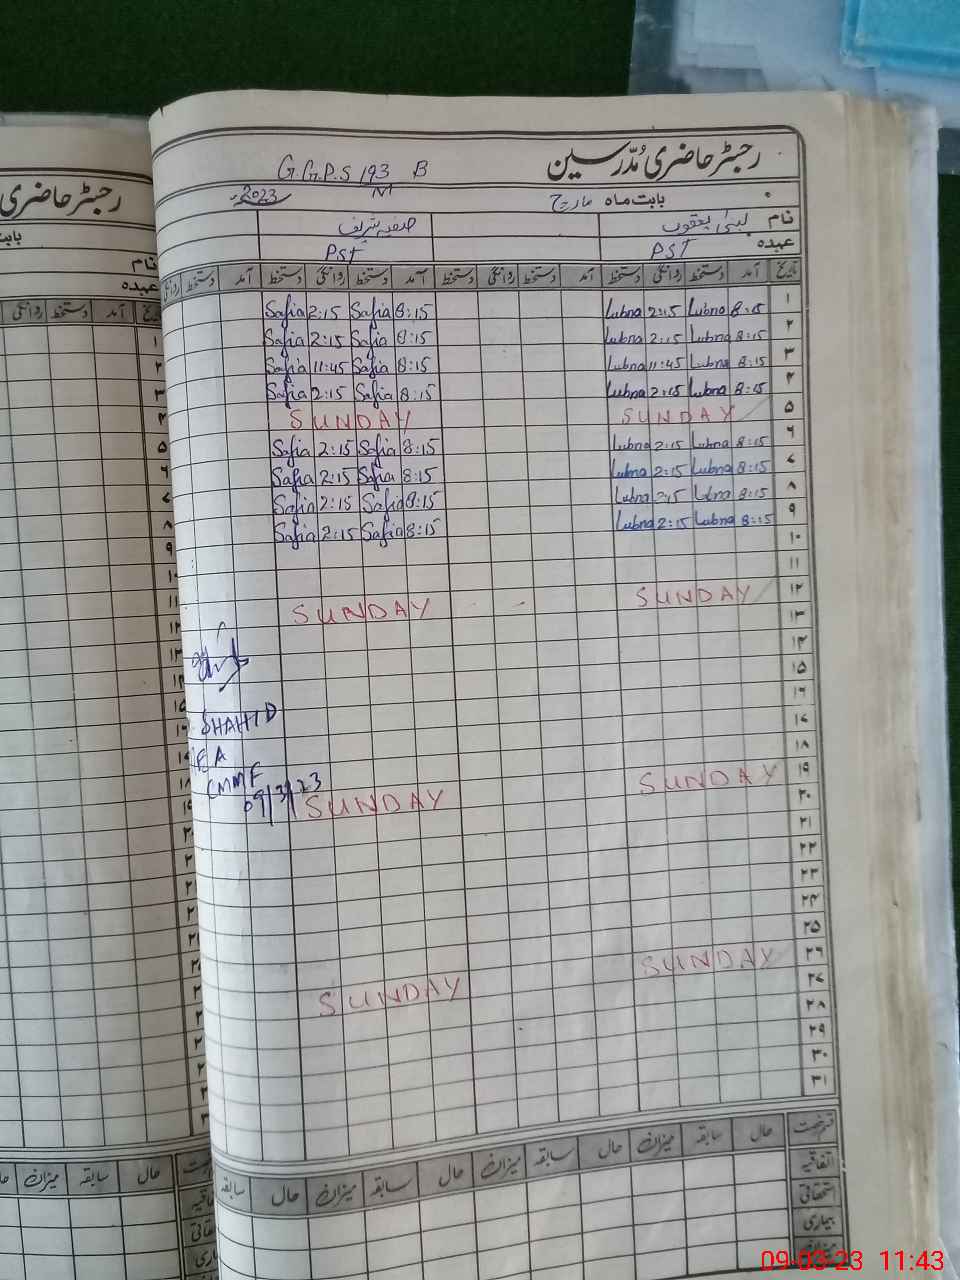 رجسٹر حاضری مدرسین
G.G.P.S 193 B
بابت ماہ مارچ 2023
نام لبنیٰ یعقوب صفیہ شریف
عہدہ PST PST
تاریخ آمد دستخط روانگی دستخط آمد دستخط روانگی دستخط آمد دستخط روانگی دستخط آمد دستخط روانگی
۱ 8:15 Lubna 2:15 Lubna 8:15 Safia 2:15 Safia
۲ 8:15 Lubna 2:15 Lubna 8:15 Safia 2:15 Safia
۳ 8:15 Lubna 11:45 Lubna 8:15 Safia 11:45 Safia
۴ 8:15 Lubna 2:15 Lubna 8:15 Safia 2:15 Safia
۵ SUNDAY SUNDAY
۶ 8:15 Lubna 2:15 Lubna 8:15 Safia 2:15 Safia
۷ 8:15 Lubna 2:15 Lubna 8:15 Safia 2:15 Safia
۸ 8:15 Lubna 2:15 Lubna 8:15 Safia 2:15 Safia
۹ 8:15 Lubna 2:15 Lubna 8:15 Safia 2:15 Safia
۱۰
۱۱
۱۲ SUNDAY SUNDAY
۱۳
۱۴
۱۵
۱۶
SHAHID
۱۷
EA
۱۸
CMMF
۱۹ SUNDAY SUNDAY
09/3/23
۲۰
۲۱
۲۲
۲۳
۲۴
۲۵
۲۶ SUNDAY SUNDAY
۲۷
۲۸
۲۹
۳۰
۳۱
رخصت حال سابقہ میزان حال سابقہ میزان حال سابقہ میزان حال سابقہ
اتفاقیہ
استحقاقی
بیماری
رجسٹر حاضری
بابت
نام
عہدہ
تاریخ آمد دستخط روانگی
حال سابقہ میزان
09-03-23 11:43